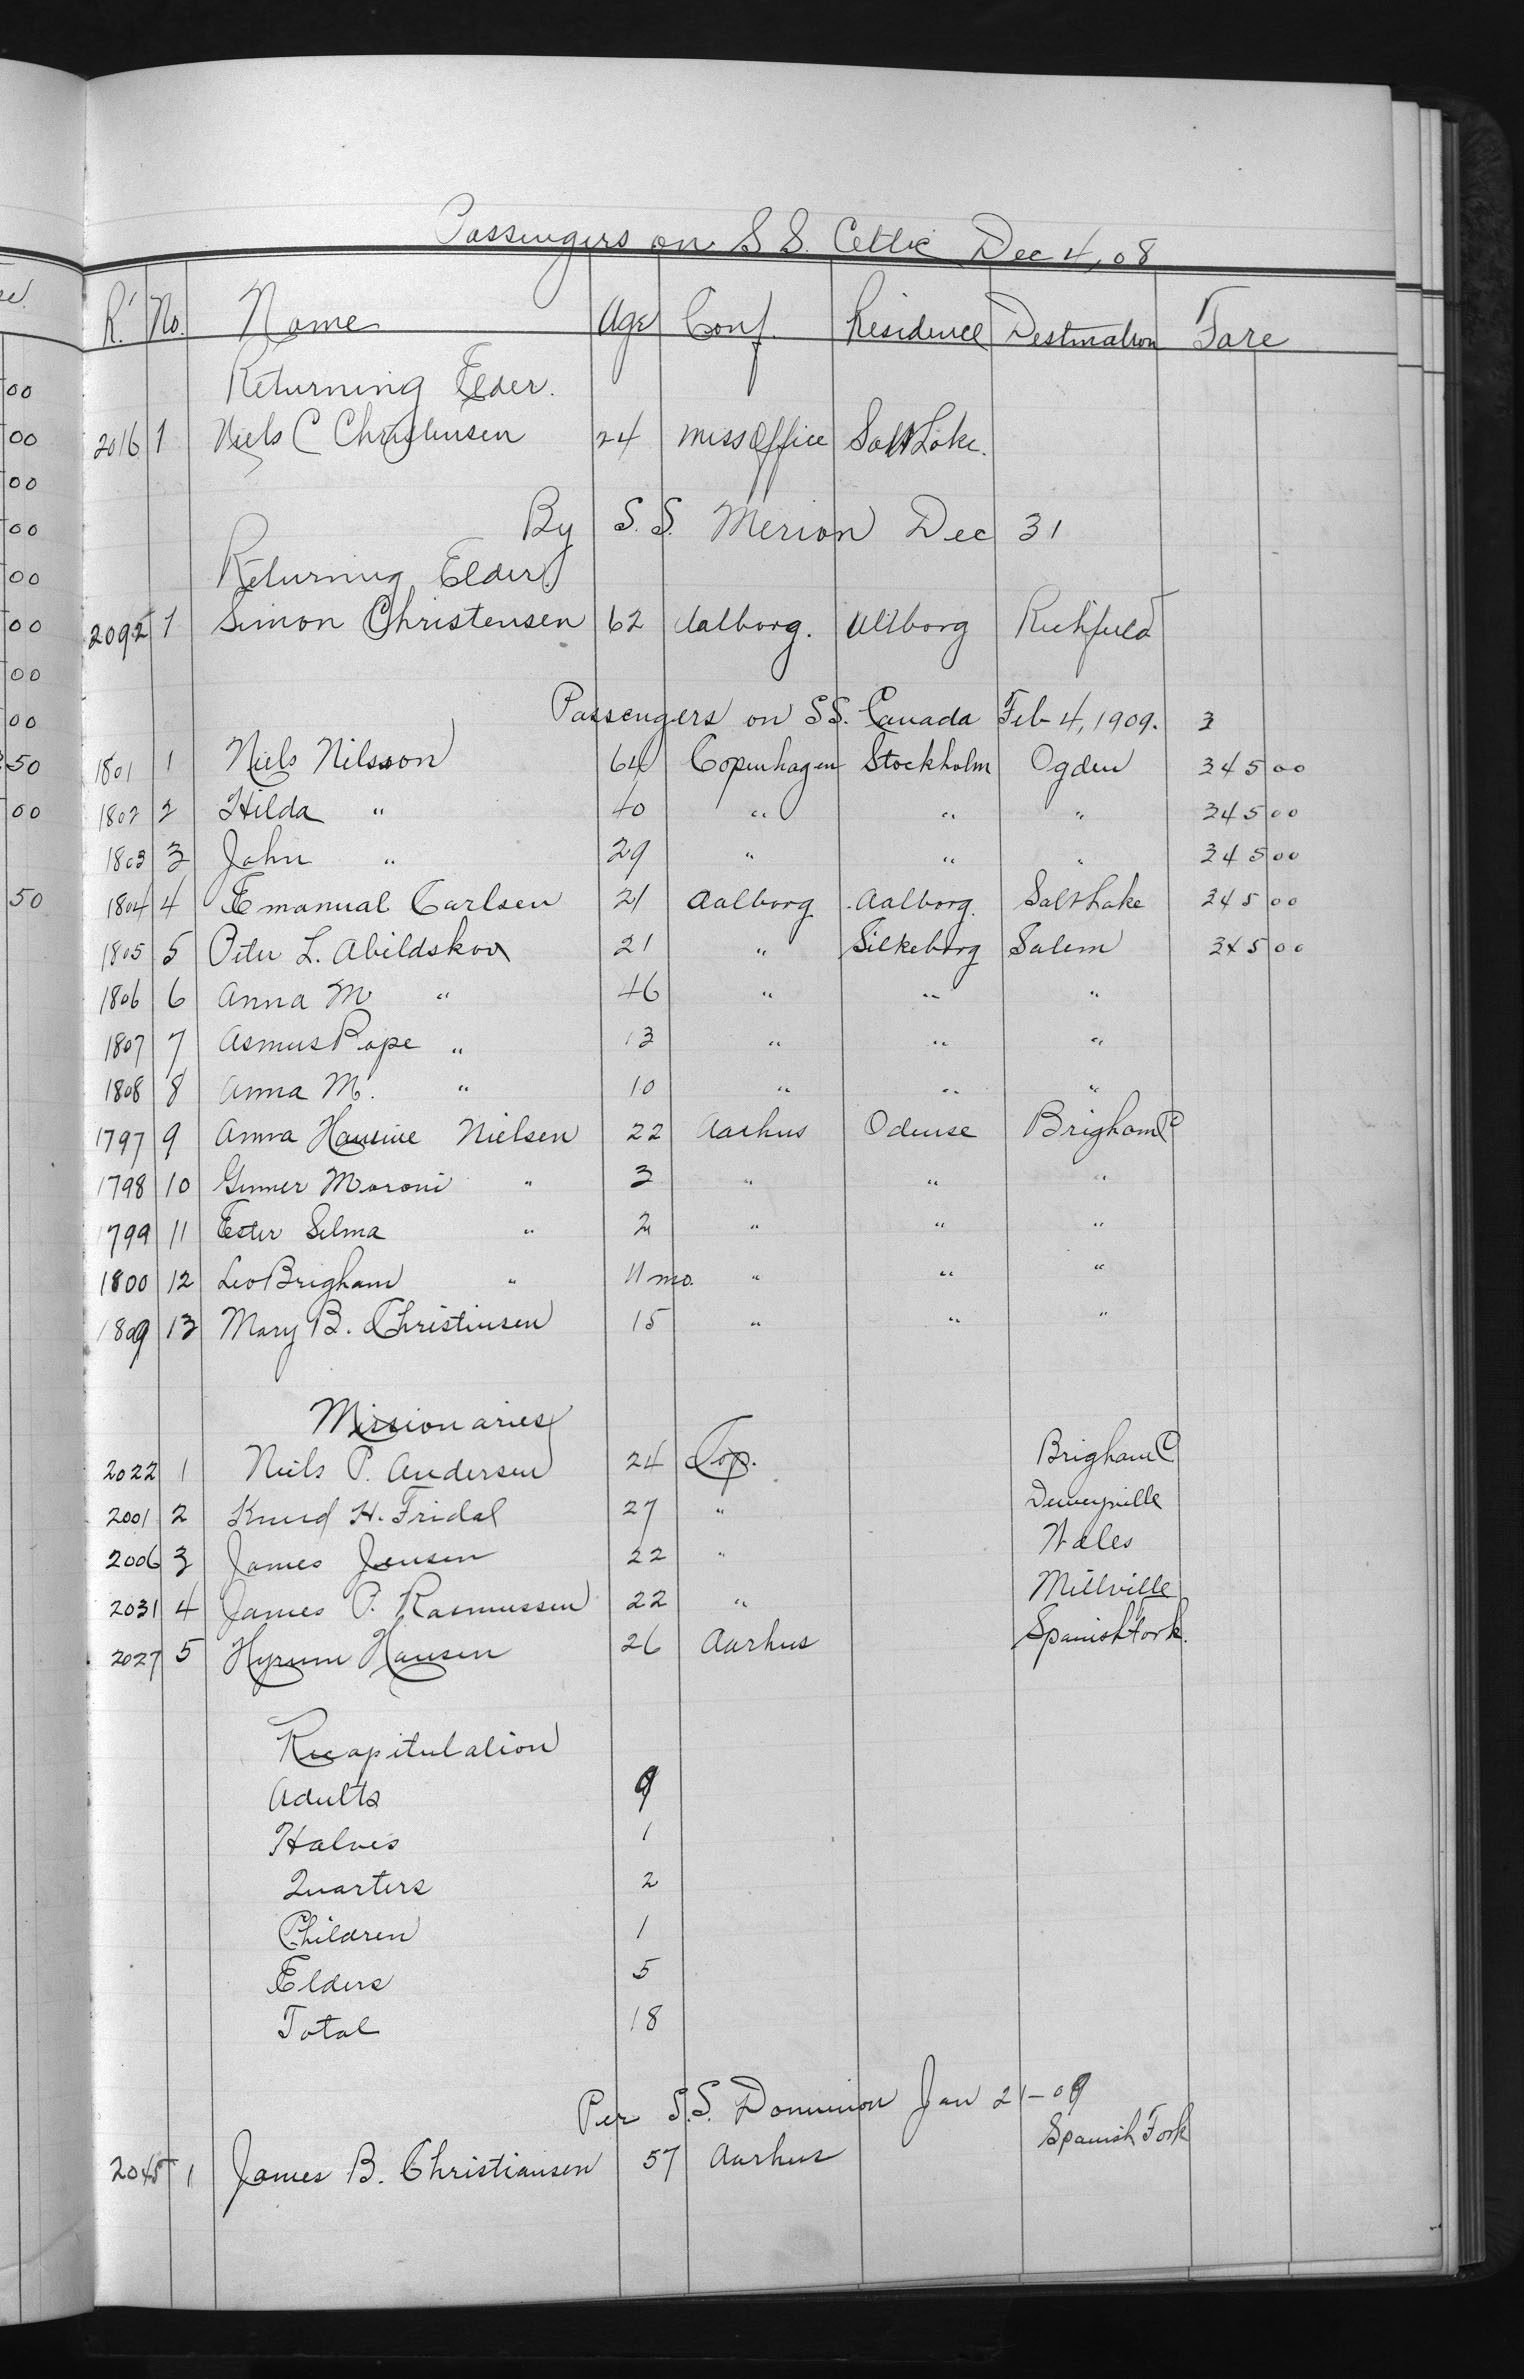 Passengers on S S. Celtic Dec 4, 08
R. No. Name Age Conf. Residence Destination Fare
Returning Elder.
2016 1 Niels C Christensen 24 Miss Office Salt Lake.
By S.S. Merion Dec 31
Returning Elder
2092 1 Simon Christensen 62 Aalborg. Allborg Richfield
Passengers on SS. Canada Feb 4, 1909. 3
1801 1 Niels Nilsson 64 Copenhagen Stockholm Ogden 345 00
1802 2 Hilda " 40 " " " 345 00
1803 3 John " 29 " " " 345 00
1804 4 Emanual Carlsen 21 Aalborg Aalborg. Salt Lake 345 00
1805 5 Peter L. Abildskov 21 " Silkeborg Salem 345 00
1806 6 Anna M " 46 " " "
1807 7 Asmus Pope " 13 " " "
1808 8 Anna M. " 10 " " "
1797 9 Anna Hansine Nielsen 22 Aarhus Odense Brigham C
1798 10 Gunner Moroni " 3 " " "
1799 11 Ester Selma " 2 " " "
1800 12 Leo Brigham " 11 mo. " " "
1809 13 Mary B. Christensen 15 " " "
Missionaries
2022 1 Niels P. Andersen 24 Cop. Brigham C
2001 2 Knud H. Fridal 27 " Deweyville
2006 3 James Jensen 22 " Wales
2031 4 James P. Rasmussen 22 " Millville
2027 5 Hyrum Hansen 26 Aarhus Spanish Fork.
Recapitulation
Adults 9
Halves 1
Quarters 2
Children 1
Elders 5
Total 18
Per S.S. Dominion Jan 21-09
2045 1 James B. Christiansen 57 Aarhus Spanish Fork
00
00
00
00
00
00
00
00
50
00
50